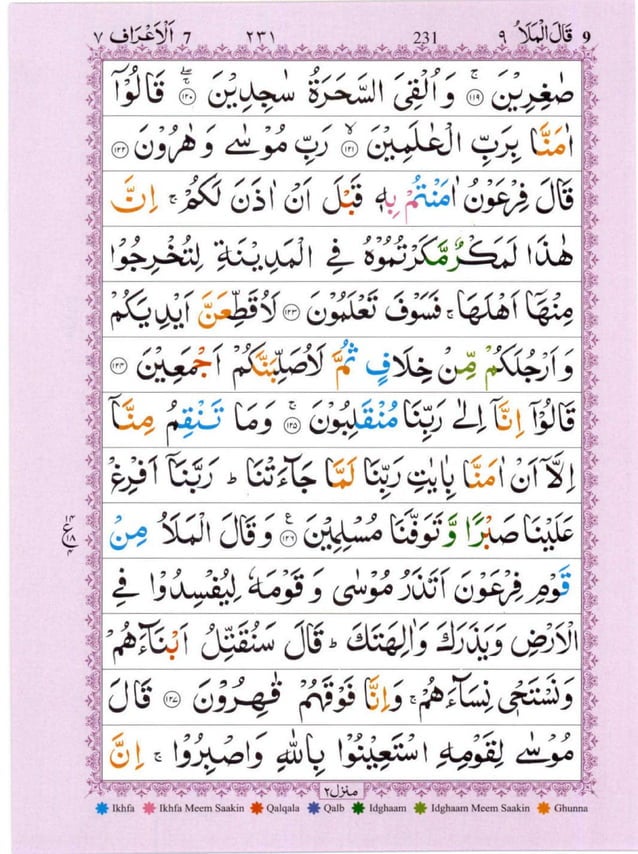 ٧ اَلْاَعْرَاف 7 ٢٣١ 231 ٩ قَالَ الْمَلَاُ 9
صٰغِرِيْنَ ۚ‏﴿۱۱۹﴾ وَ اُلْقِىَ السَّحَرَةُ سٰجِدِيْنَ ‌ۚۖ‏﴿۱۲۰﴾ قَالُوْۤا
اٰمَنَّا بِرَبِّ الْعٰلَمِيْنَ ۙ‏﴿۱۲۱﴾ رَبِّ مُوْسٰى وَ هٰرُوْنَ‏ ﴿۱۲۲﴾
قَالَ فِرْعَوْنُ اٰمَنْتُمْ بِهٖ قَبْلَ اَنْ اٰذَنَ لَكُمْ‌ۚ اِنَّ
هٰذَا لَمَكْرٌ مَّكَرْتُمُوْهُ فِى الْمَدِيْنَةِ لِتُخْرِجُوْا
مِنْهَاۤ اَهْلَهَا‌ ۚ فَسَوْفَ تَعْلَمُوْنَ‏ ﴿۱۲۳﴾ لَاُقَطِّعَنَّ اَيْدِيَكُمْ
وَ اَرْجُلَكُمْ مِّنْ خِلَافٍ ثُمَّ لَاُصَلِّبَنَّكُمْ اَجْمَعِيْنَ‏ ﴿۱۲۴﴾
قَالُوْۤا اِنَّاۤ اِلٰى رَبِّنَا مُنْقَلِبُوْنَ‌ ۚ‏﴿۱۲۵﴾ وَمَا تَنْقِمُ مِنَّاۤ
اِلَّاۤ اَنْ اٰمَنَّا بِاٰيٰتِ رَبِّنَا لَمَّا جَآءَتْنَا‌ ؕ رَبَّنَاۤ اَفْرِغْ
عَلَيْنَا صَبْرًا وَّ تَوَفَّنَا مُسْلِمِيْنَ‏ ﴿۱۲۶﴾ وَ قَالَ الْمَلَاُ مِنْ
١٤ ع ١٨ ٤
قَوْمِ فِرْعَوْنَ اَتَذَرُ مُوْسٰى وَ قَوْمَهٗ لِيُفْسِدُوْا فِى
الْاَرْضِ وَيَذَرَكَ وَاٰلِهَتَكَ‌ ؕ قَالَ سَنُقَتِّلُ اَبْنَآءَهُمْ
وَ نَسْتَحْىٖ نِسَآءَهُمْ‌ ۚ وَاِنَّا فَوْقَهُمْ قٰهِرُوْنَ‏ ﴿۱۲۷﴾ قَالَ
مُوْسٰى لِقَوْمِهِ اسْتَعِيْنُوْا بِاللّٰهِ وَاصْبِرُوْا‌ ۚ اِنَّ
منزل٢
Ikhfa Ikhfa Meem Saakin Qalqala Qalb Idghaam Idghaam Meem Saakin Ghunna